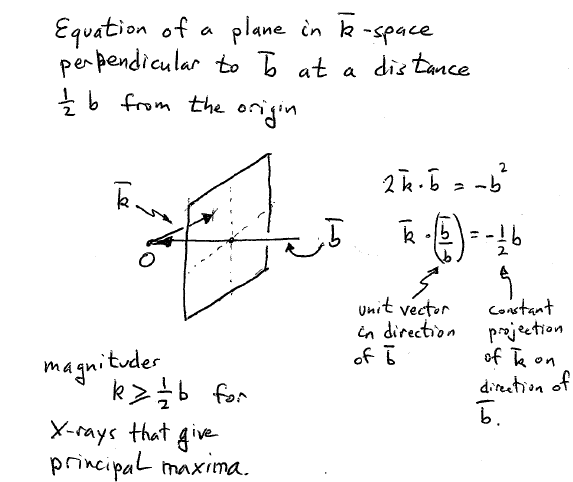 Equation of a plane in k̄-space
perpendicular to b̄ at a distance
½ b from the origin
k̄
O
b̄
2k̄·b̄ = -b²
k̄·(b̄/b) = -½b
unit vector
in direction
of b̄
constant
projection
of k̄ on
direction of
b̄.
magnitudes
k ⩾ ½ b for
X-rays that give
principal maxima.